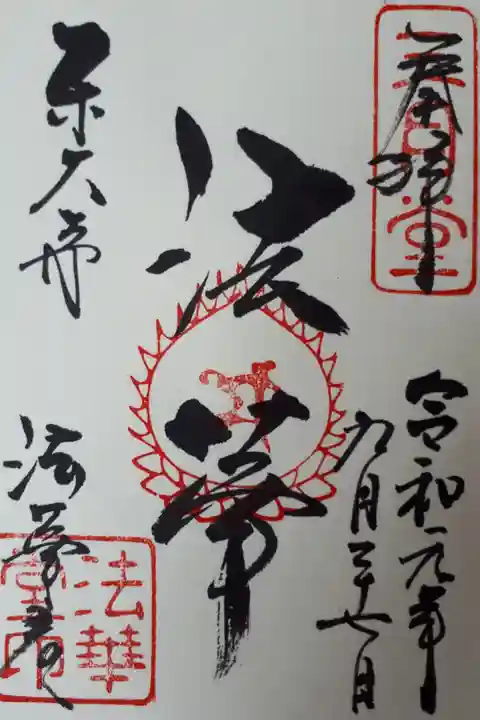 奉拝
三月堂
令和元年
九月二十七日
法華
東大寺
法華堂
法華堂印